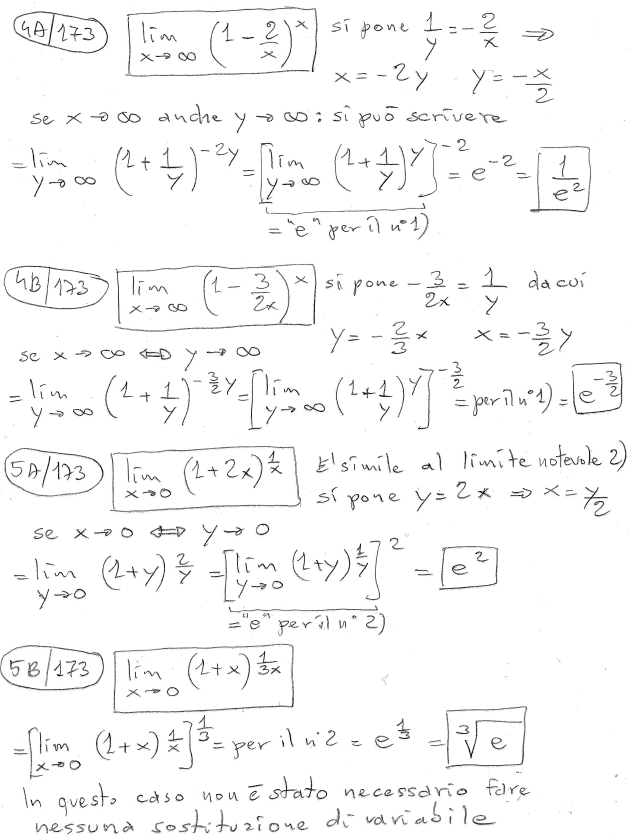 4A/173 lim x→∞ (1 - 2/x)^x si pone 1/y = -2/x ⇒
x = -2y y = -x/2
se x→∞ anche y→∞ : si può scrivere
= lim y→∞ (1 + 1/y)^(-2y) = [lim y→∞ (1 + 1/y)^y]^(-2) = e^(-2) = 1/e²
= "e" per il n°1)
4B/173 lim x→∞ (1 - 3/2x)^x si pone -3/2x = 1/y da cui
y = -2/3 x x = -3/2 y
se x→∞ ⇔ y→∞
= lim y→∞ (1 + 1/y)^(-3/2 y) = [lim y→∞ (1 + 1/y)^y]^(-3/2) = per il n°1) = e^(-3/2)
5A/173 lim x→0 (1 + 2x)^(1/x) E' simile al limite notevole 2)
si pone y = 2x ⇒ x = y/2
se x→0 ⇔ y→0
= lim y→0 (1+y)^(2/y) = [lim y→0 (1+y)^(1/y)]^2 = e²
= "e" per il n° 2)
5B/173 lim x→0 (1+x)^(1/3x)
= [lim x→0 (1+x)^(1/x)]^(1/3) = per il n°2 = e^(1/3) = ∛e
In questo caso non è stato necessario fare
nessuna sostituzione di variabile